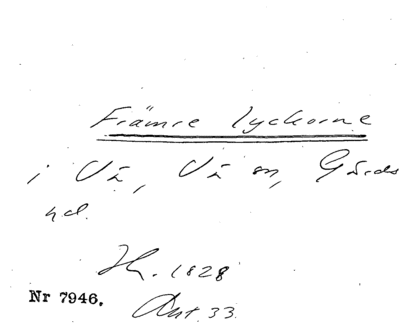 Främre lyckorne
i Vä, Vä sn, Gärds
hd.
Hk. 1828
Nr 7946.
Akt 33